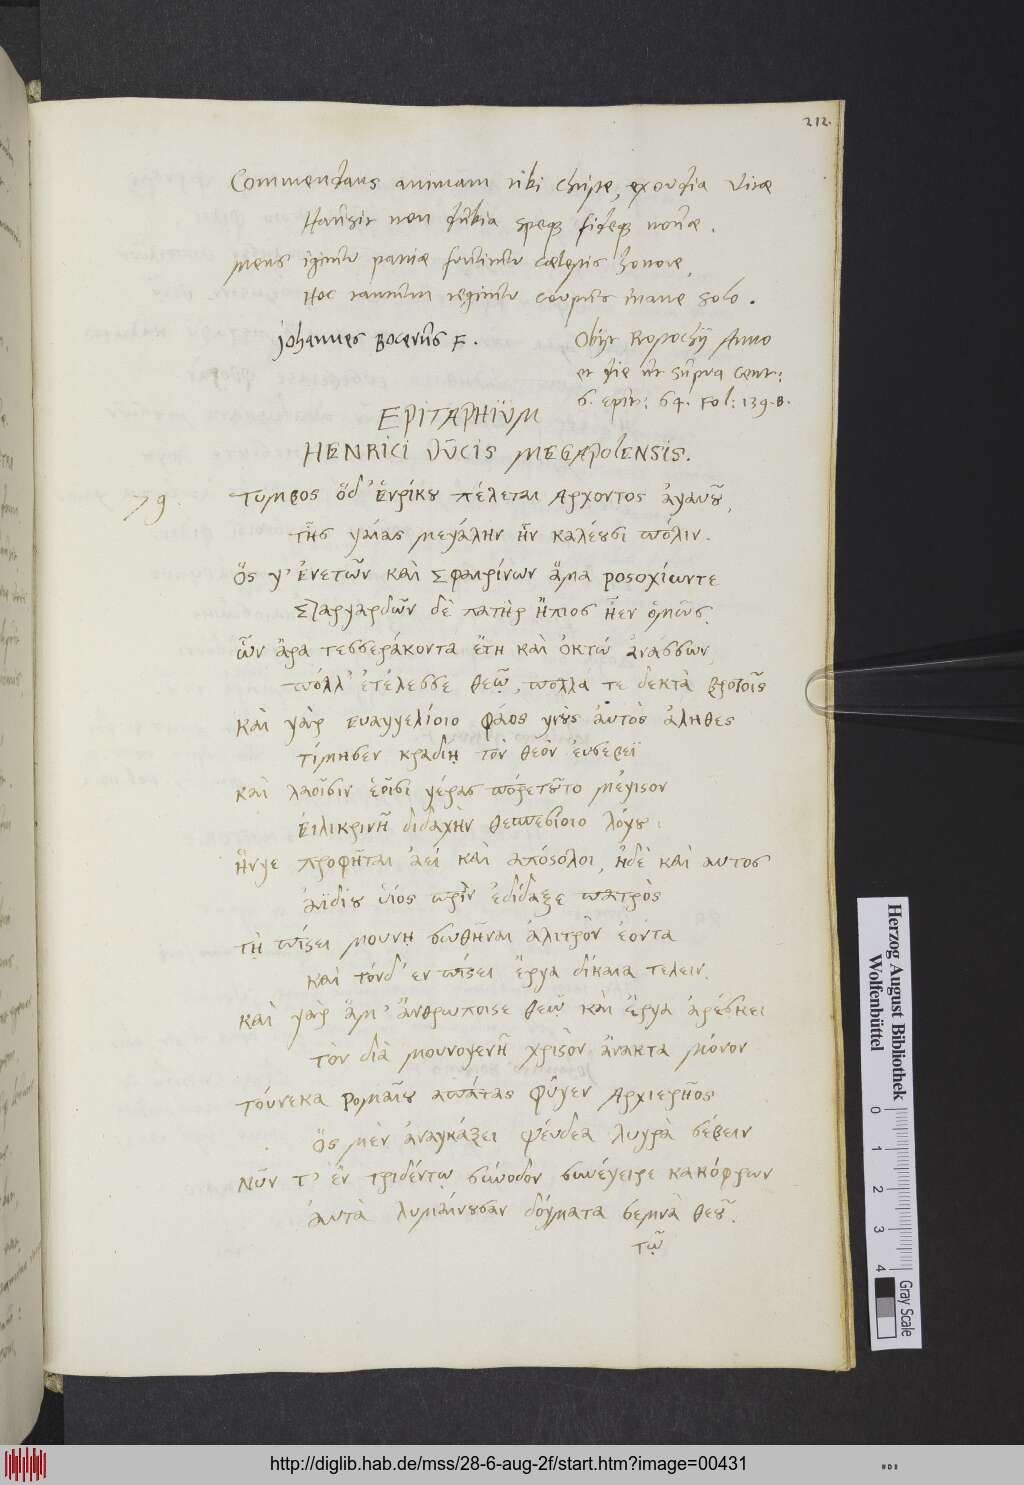 212.
Commendans animam tibi Christe, exordia vitæ
Hausit non dubia speque fideque novæ.
Mens igitur patriæ fruitur cælestis honore,
Hoc tantum tegitur corpus inane solo.
Johannes Bocerus F.
Obijt Rostochij Anno
et die ut supra Cent:
6. epit: 64. Fol: 139.B.
EPITAPHIUM
HENRICI DUCIS MEGAPOLENSIS.
79.
Τυμβος ὅδ' Ἑνρίκου πέλεται Αρχοντος ἀγαυοῦ,
τῆς γαίας μεγάλην ἣν καλέουσι πόλιν.
ὅς γ' Ἐνετῶν καὶ Σφαιρίνων ἅμα ροσοχίωντε
Σταργαρδῶν δὲ πατὴρ ἤπιος ἦεν ὁμῶς.
ὧν ἄρα τεσσεράκοντα ἔτη καὶ ὀκτώ ἀνάσσων,
πόλλ' ἐτέλεσσε θεῷ, πολλα τε δεκτὰ βροτοῖς
καὶ γὰρ Ευαγγελίοιο φάος αὐτὸς ἀληθες
τίμησεν κραδίῃ τὸν θεὸν ἐυσεβεῖ
καὶ λαοῖσιν ἑοῖσι γέρας πόρετοῦτο μέγιστον
Ειλικρινῆ διδαχὴν θεσπεσίοιο λόγου.
ἥνγε προφῆται ἀεί καὶ απόστολοι, ἠδὲ καὶ αυτος
ἀϊδίου ὑιός πρὶν ἐδίδαξε πατρὸς
τῇ πίστει μουνῃ σωθῆναι ἀλιτρὸν ἐόντα
καὶ τόνδ' εν πίστει ἔργα δίκαια τελειν.
καὶ γὰρ ἅμ' ἄνθρωποιςε θεῷ καὶ ἔργα ἀρέσκει
τὸν διὰ μουνογενῆ χριστον ἄνακτα μόνον
τούνεκα Ρομαίου απάτας φύγεν Αρχιερῆος
ὅς μὲν ἀναγκάζει ψέυδεα λυγρὰ σέβειν
Νῦν τ' ἐν τριδέντῳ σύνοδον συνέγειρε κακόφρων
ἀυτὰ λυμαίνουσαν δόγματα σεμνὰ θεοῦ.
τῷ
Herzog August Bibliothek
Wolfenbüttel
0 1 2 3 4
Gray Scale
http://diglib.hab.de/mss/28-6-aug-2f/start.htm?image=00431